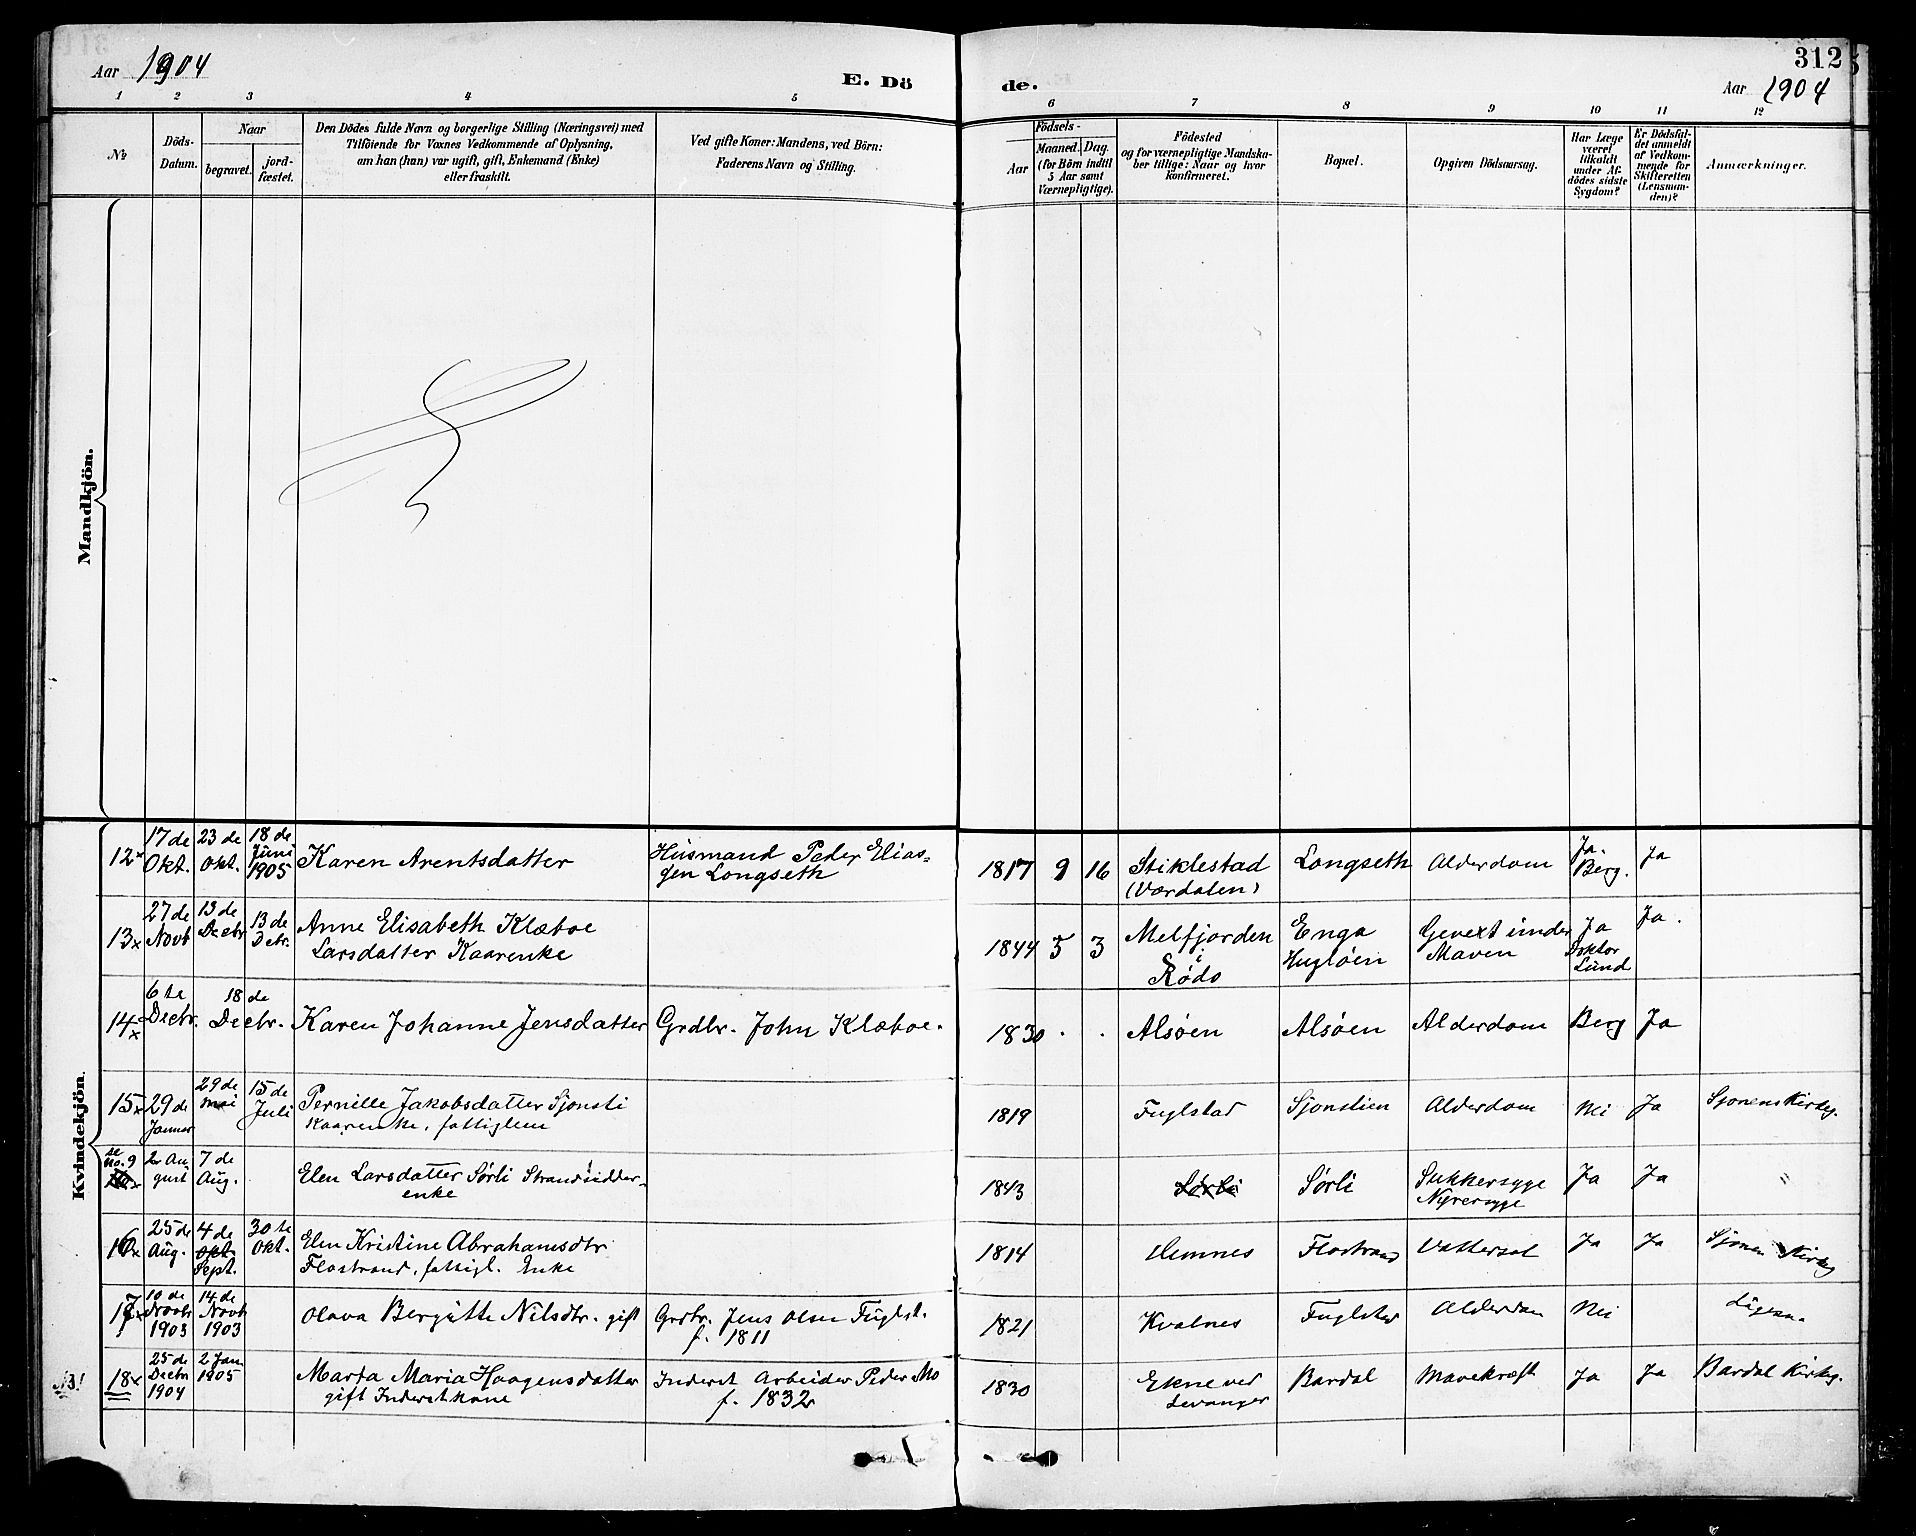 Aar 1904
E. Dö
de.
312
Aar 1904
1 2 3 4 5 6 7 8 9 10 11 12
№
Döds-
Datum.
Naar
begravet.
jord-
fæstet.
Den Dödes fulde Navn og borgerlige Stilling (Næringsvei) med
Tilföiende for Voxnes Vedkommende af Oplysning,
om han (hun) var ugift, gift, Enkemand (Enke)
eller fraskilt.
Ved gifte Koner: Mandens, ved Börn:
Faderens Navn og Stilling.
Födsels-
Aar
Maaned. Dag.
(for Börn indtil
5 Aar samt
Værnepligtige).
Födested
og for værnepligtige Mandska-
ber tillige: Naar og hvor
konfirmeret.
Bopæl.
Opgiven Dödsaarsag.
Har Læge
været
tilkaldt
under Af-
dödes sidste
Sygdom?
Er Dödsfal-
det anmeldt
af Vedkom-
mende for
Skifteretten
(Lensman-
den)?
Anmærkninger.
Mandkjön.
Kvindekjön.
12 17 de Okt. 23 de Okt. 18 de Juni 1905 Karen Arentsdatter Husmand Peder Elias-
sen Longseth 1817 9 16 Stiklestad
(Værdalen) Longseth Alderdom Ja.
Berg. Ja
13x 27 de Novb 13 de Decbr 13 de Dcbr. Anne Elisabeth Klæboe
Larsdatter Kaarenke 1844 5 3 Melfjorden
i
Rødø Enga
Hugløen Gevext under
Maven Ja
Doktor
Lund Ja.
14x 6 te Decbr. 18 de Decbr. Karen Johanne Jensdatter Grdbr. John Klæboe. 1830 . . Alsøen Alsøen Alderdom Berg Ja
15x 29 de Januar 29 de Mai 15 de Juli Pernille Jakobsdatter Sjonsti
Kaarenke, fattiglem 1819 Fuglstad Sjonstien Alderdom Nei Ja Sjonens Kirkeg.
se
No. 9 2 August 7 de Aug. Elen Larsdatter Sørli Strandsidder-
enke 1843 Sørli Sørli Sukkersyge
Nyresyge Ja Ja
16x 25 de Aug. 4 de Okt. Sept. 30 te Okt. Elen Kristine Abrahamsdtr
Flostrand, fattigl. Enke 1814 Hemnes Flostrand Vattersot Ja Ja Sjonen Kirkeg
17x 10 de Novbr 1903 14 de Novb 1903 Olava Bergitte Nilsdtr. gift Grdbr. Jens Olsen Fuglst.
f. 1811 1821 Kvalnes Fuglstad Alderdom Nei
18x 25 de Decbr 1904 2 Jan 1905 Marta Maria Haagensdatter
gift Inderstkone Inderst Arbeider Peder Mo
f. 1832 1830 Ekne ved
Levanger Bardal Mavekræft Ja Ja Bardal Kirkeg.